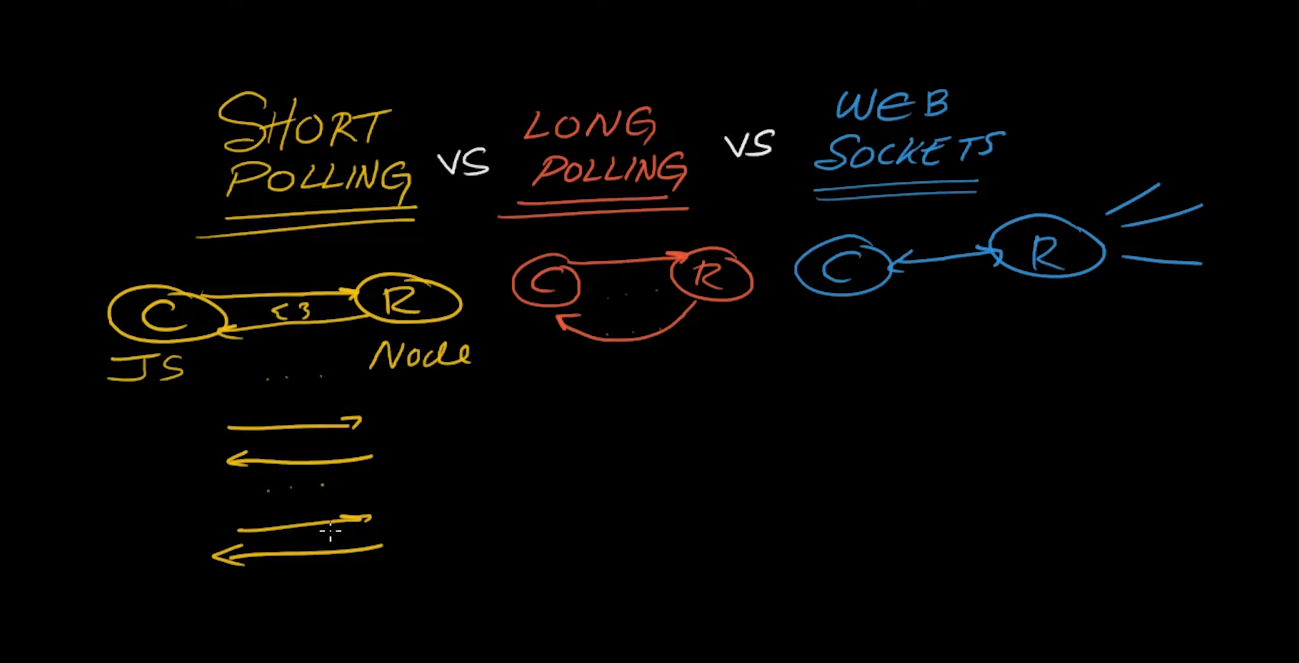 SHORT
POLLING
VS
LONG
POLLING
VS
WEB
SOCKETS
C
{}
R
JS
Node
C
R
C
R